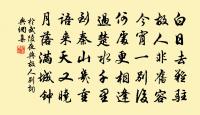 白日去難駐
故人非舊容
今宵一別後
何處更相逢
過楚水千里
到秦山幾重
語來天又曉
月落滿城鐘
於武陵夜與故人別詞
集書